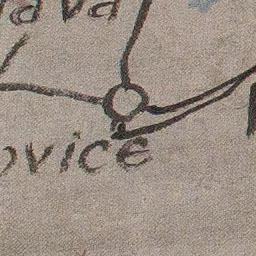 ava
ovice